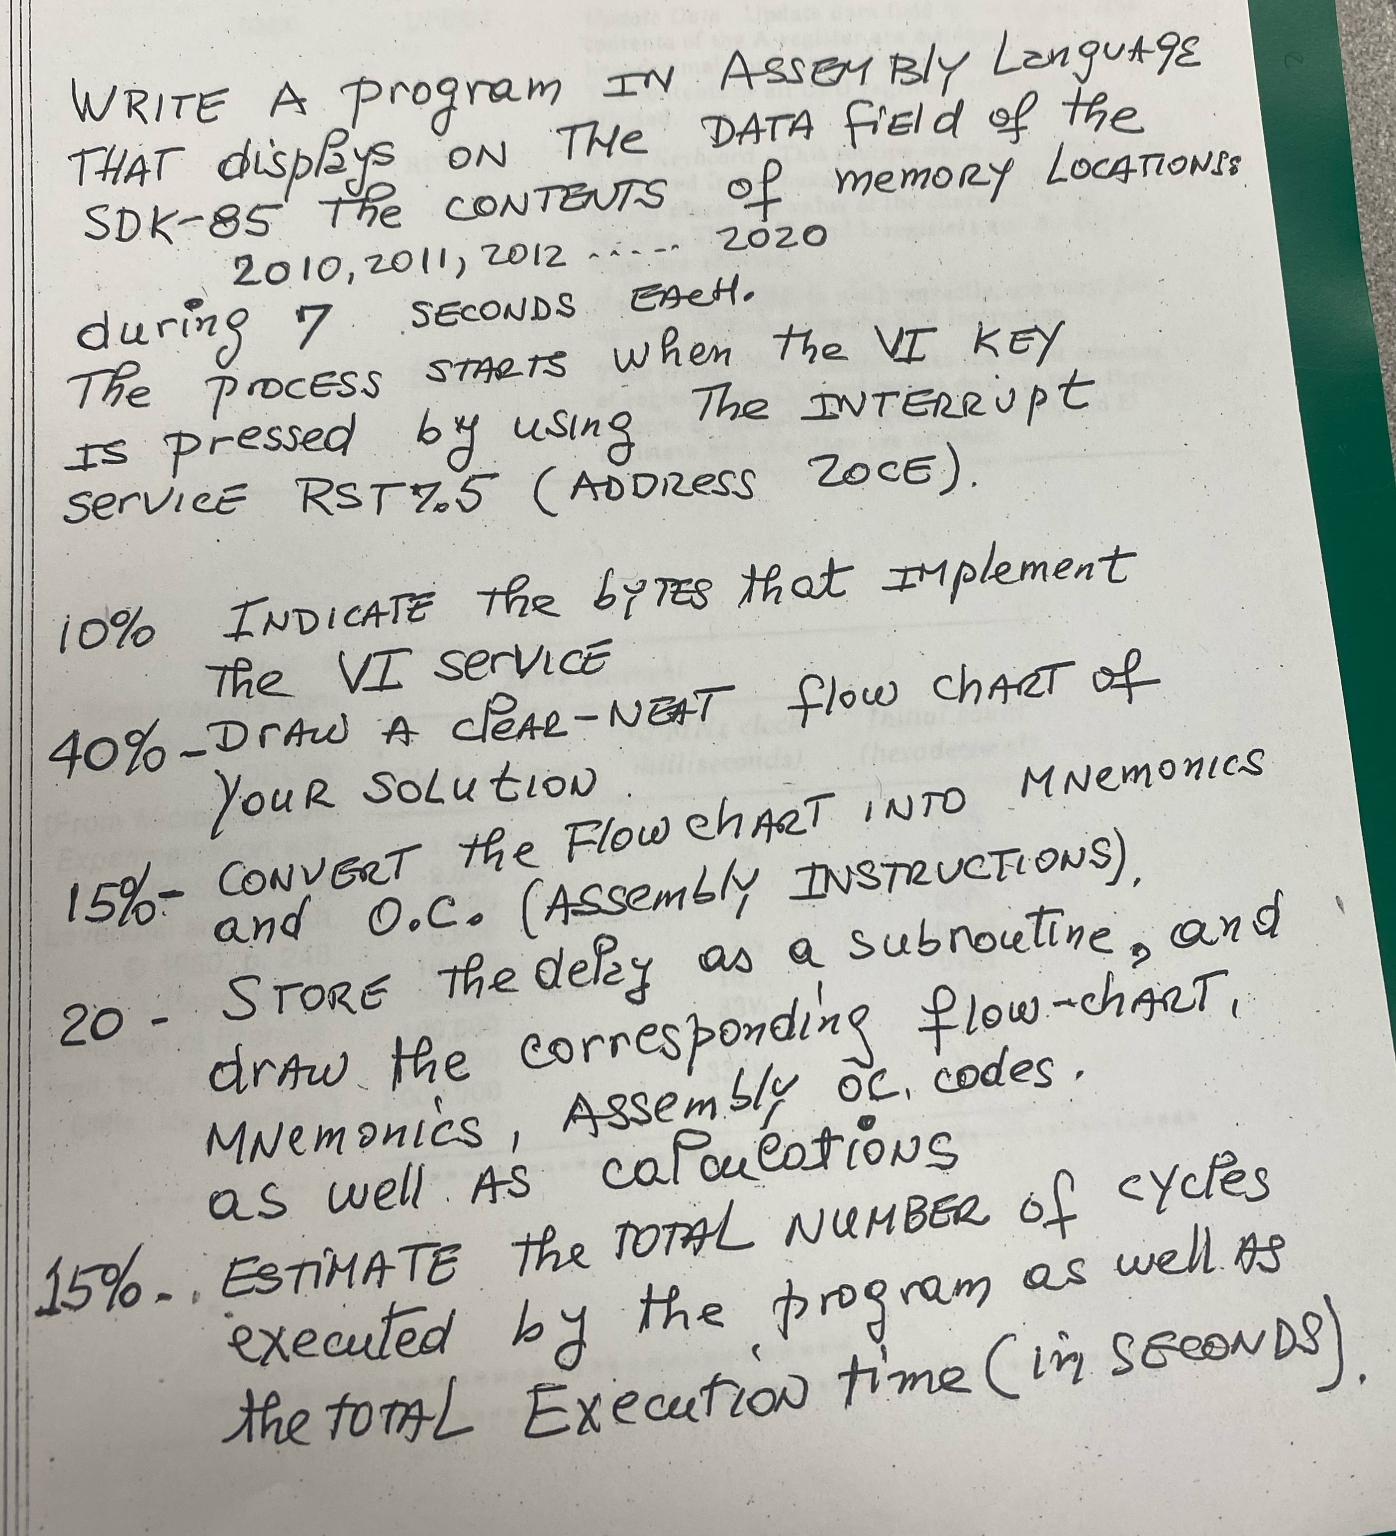 WRITE A program IN ASSEMBly LanguAgE
THAT displays ON THe DATA fiEld of the
SDK-85 The CONTENTS of memoRy LOCATIONS:
2010, 2011, 2012 ..... 2020
during 7 SECONDS EAcH.
The pROCESS STARTS when the VI KEY
IS pressed by using The INTERRupt
servicE RST7.5 (ADDRESS 20CE).
10% INDICATE the byTES that IMplement
the VI servicE
40% - DrAW A cleAR-NEAT flow chART of
YouR SoLutION.
15% - CONVERT the FlowchART INTO MNemonics
and O.C. (ASSembly INSTRUCTIONS).
20 - STORE the delay as a subroutine, and
drAW the corresponding flow-chART,
MNemonics, ASSembly OC. codes.
as well AS calculations
15% - ESTiMATE the TOTAL NUMBER of cycles
executed by the program as well AS
the TOTAL Execution time (in SECONDS).